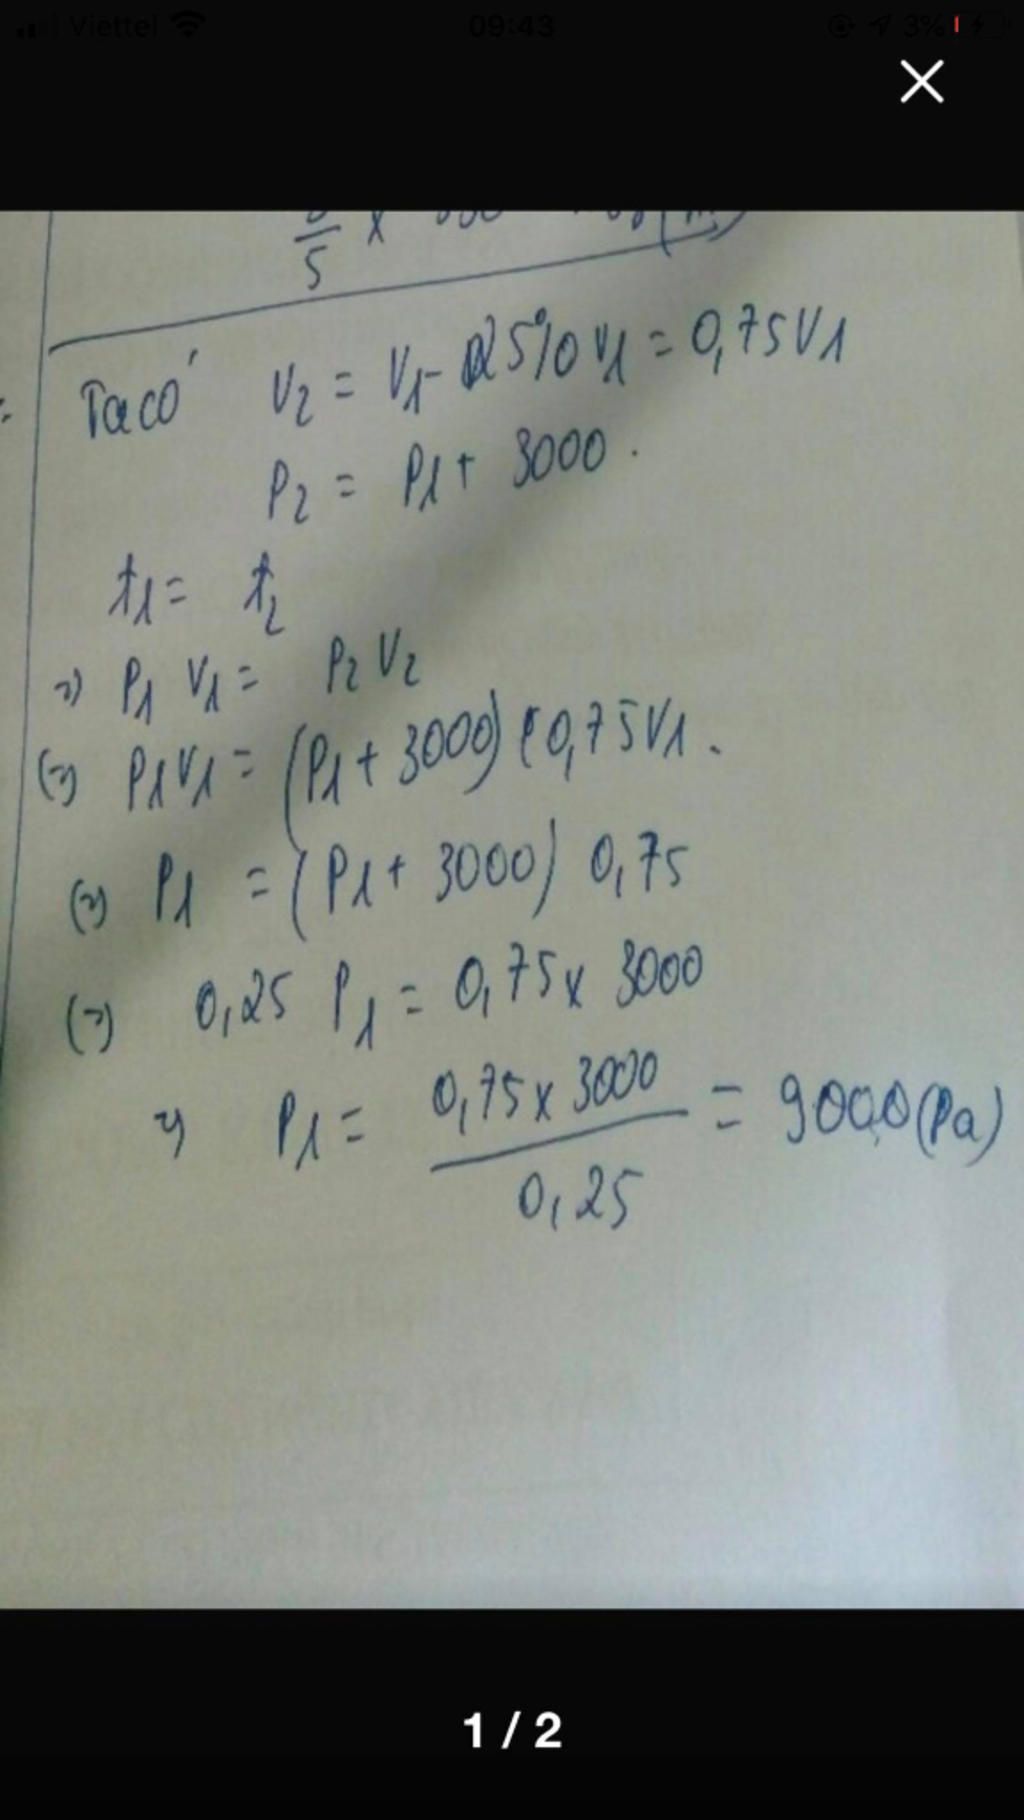 Viettel 09:43 3%
5 x
Ta có V2 = V1 - 25% V1 = 0,75V1
P2 = P1 + 3000.
t1 = t2
=> P1 V1 = P2 V2
(=) P1V1 = (P1 + 3000) 0,75V1.
(=) P1 = (P1 + 3000) 0,75
(=) 0,25 P1 = 0,75 x 3000
=> P1 = 0,75 x 3000 / 0,25 = 9000 (Pa)
1 / 2